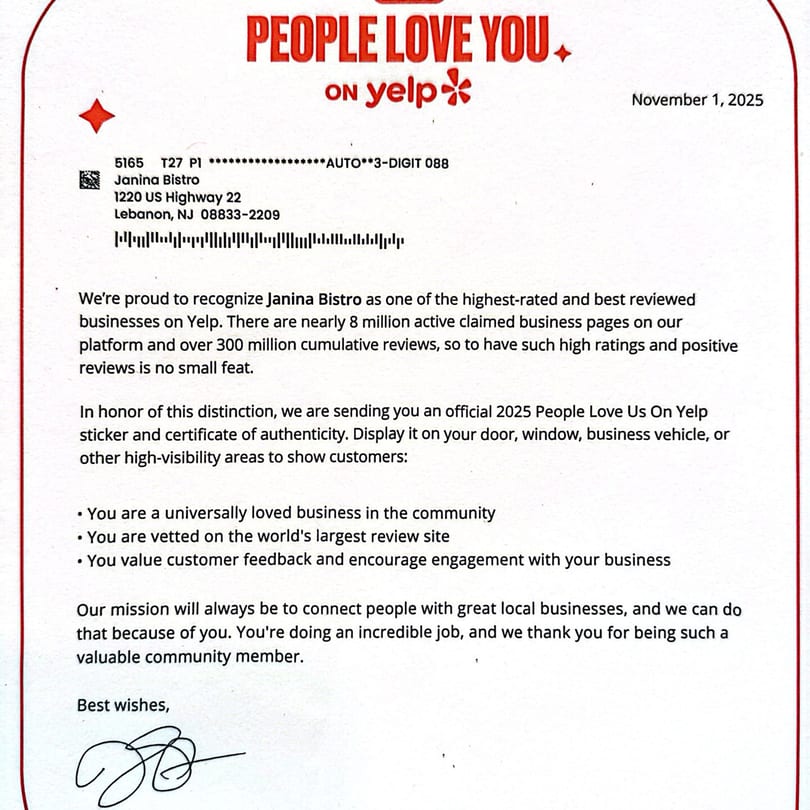 PEOPLE LOVE YOU
ON yelp
November 1, 2025
5165 T27 P1 ******************AUTO**3-DIGIT 088
Janina Bistro
1220 US Highway 22
Lebanon, NJ 08833-2209
We're proud to recognize Janina Bistro as one of the highest-rated and best reviewed
businesses on Yelp. There are nearly 8 million active claimed business pages on our
platform and over 300 million cumulative reviews, so to have such high ratings and positive
reviews is no small feat.
In honor of this distinction, we are sending you an official 2025 People Love Us On Yelp
sticker and certificate of authenticity. Display it on your door, window, business vehicle, or
other high-visibility areas to show customers:
• You are a universally loved business in the community
• You are vetted on the world's largest review site
• You value customer feedback and encourage engagement with your business
Our mission will always be to connect people with great local businesses, and we can do
that because of you. You're doing an incredible job, and we thank you for being such a
valuable community member.
Best wishes,